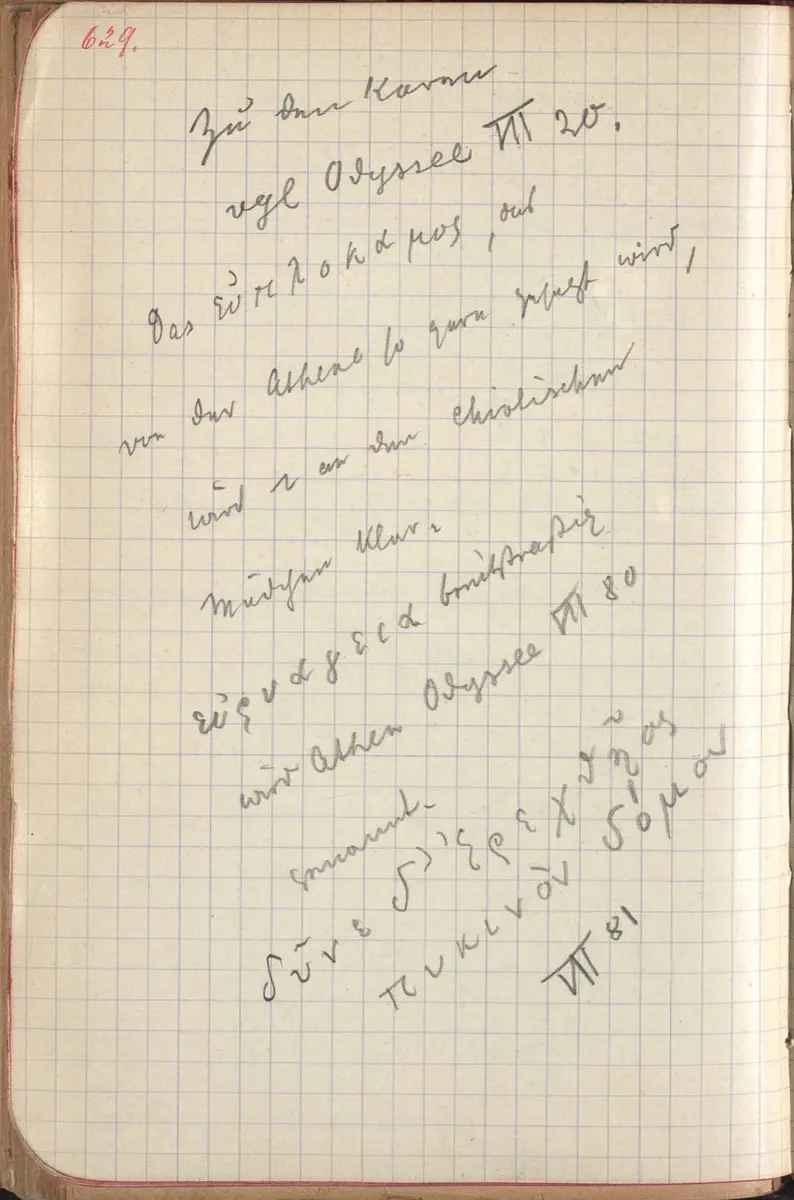 629.
Zu den Koren
vgl Odyssee VII 20.
Das εὐπλοκαμος, das
von der Athene so gern gesagt wird,
wird an den chiotischen
Mädchen klar.
εὐρυαγεια breitstraßig
wird Athen Odyssee VII 80
genannt.
δῦνε δ' Ἐρεχθῆος
πυκινὸν δόμον
VII 81